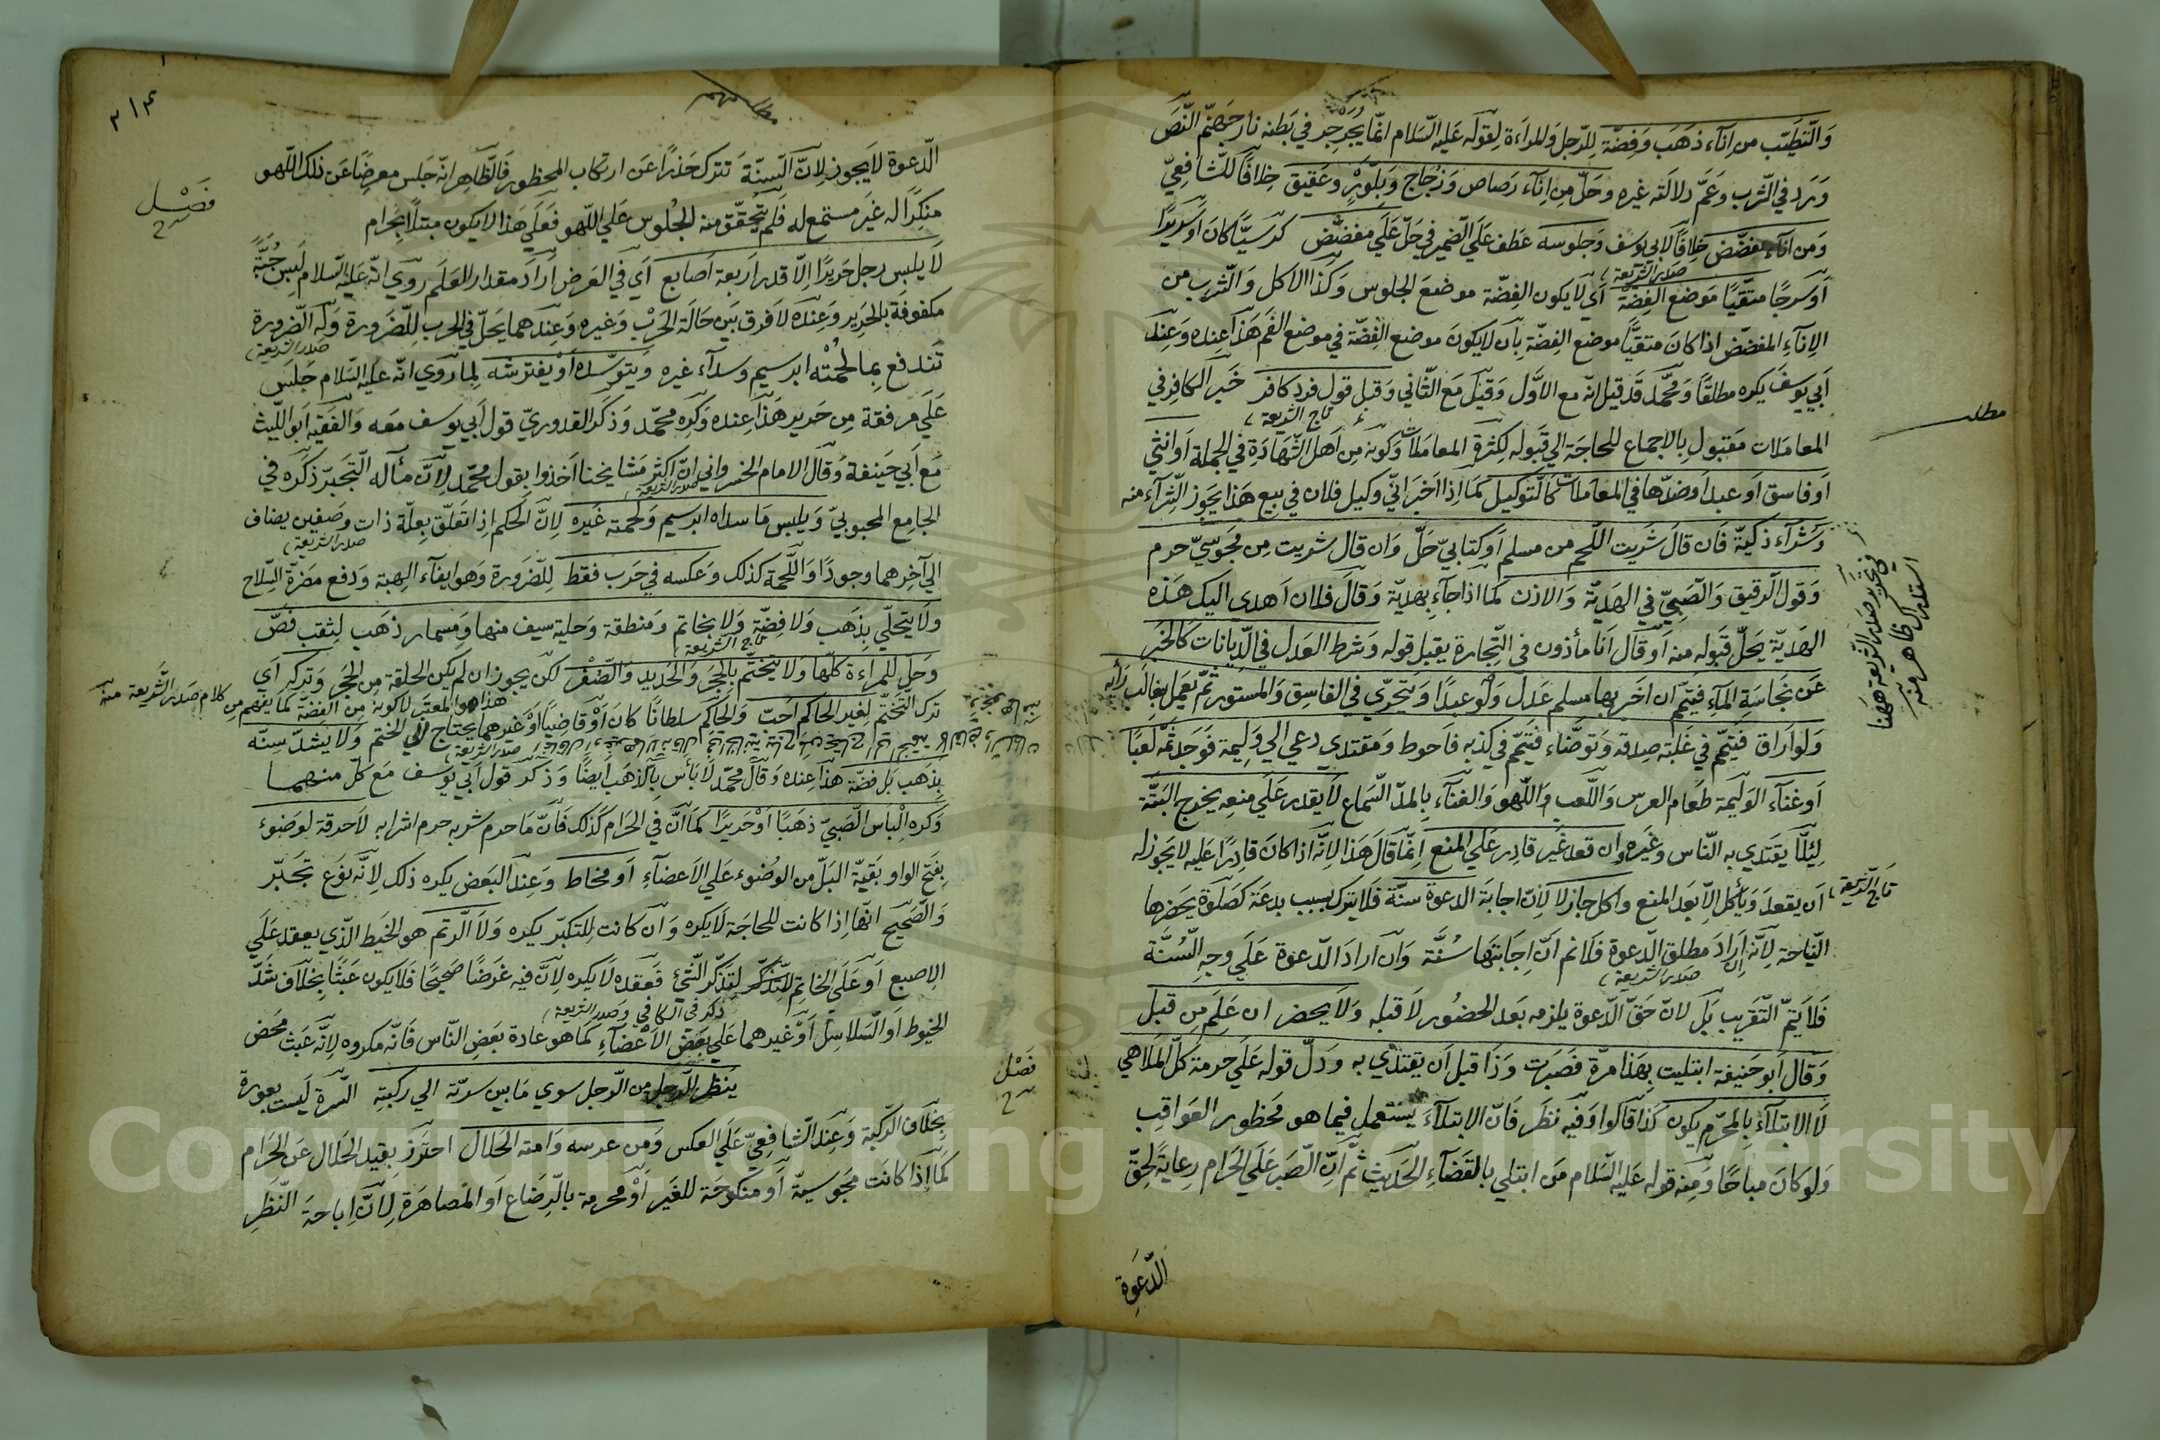 والتطيب من اناء ذهب وفضة للرجل وللمراءة لقوله عليه السلام انما يجرجر في بطنه نار جهنم النص
ورد في الشرب وعم دلالته غيره وحل من اناء رصاص وزجاج وبلور وعقيق خلافا للشافعي
ومن اناء مفضض خلافا لابي يوسف وجلوسه عطف على الضمير في حل علي مفضض كرسيا كان او سريرا
صدر الشريعة
او سرجا متقيا موضع الفضة اي لا يكون الفضة موضع الجلوس وكذا الاكل والشرب من
الاناء المفضض اذا كان متقيا موضع الفضة بان لا يكون موضع الفضة في موضع الفم هذا عنده وعند
ابي يوسف يكره مطلقا ومحمد قد قيل انه مع الاول وقيل مع الثاني وقبل قول فرد كافر خبر الكافر في
مطلب
تاج الشريعة
المعاملات مقبول بالاجماع للحاجة الي قبوله لكثرة المعاملات وكونه من اهل الشهادة في الجملة او انثي
او فاسق او عبد او ضدها في المعاملات كالتوكيل كما اذا اخبر اني وكيل فلان في بيع هذا يجوز الشراء منه
وشراء ذكية فان قال شريت اللحم من مسلم او كتابي حل وان قال شريت من مجوسي حرم
وقول الرقيق والصبي في الهدية والاذن كما اذا جاء بهدية وقال فلان اهدي اليك هذه
الهدية يحل قبوله منه او قال انا مأذون في التجارة يقبل قوله وشرط العدل في الديانات كالخبر
عن نجاسة الماء فيتيمم ان اخبر بها مسلم عدل ولو عبدا ويتحري في الفاسق والمستور ثم يعمل بغالب رأيه
ولو اراق فتيمم في غلبة صدقه وتوضاء فتيمم في كذبه فاحوط ومقتدي دعي الي وليمة فوجد ثمه لعبا
او غناء الوليمة طعام العرس واللعب واللهو والغناء بالمد السماع لا يقدر علي منعه يخرج البتة
لئلا يقتدي به الناس وغيره ان قعد غير قادر علي المنع انما قال هذا لانه اذا كان قادرا عليه لا يجوز له
ان يقعد ويأكل الا بعد المنع واكل جاز لا لان اجابة الدعوة سنة فلا يترك بسبب بدعة كصلوة يحضرها
تاج الشريعة
النياحة لانه ان اراد مطلق الدعوة فلا نم ان اجابتها سنة وان اراد الدعوة علي وجه السنة
صدر الشريعة
فلا يتم التقريب بل لان حق الدعوة يلزمه بعد الحضور لا قبله ولا يحضر ان علم من قبل
وقال ابو حنيفة ابتليت بهذا مرة فصبرت وذا قبل ان يقتدي به ودل قوله علي حرمة كل الملاهي
لا الابتلاء بالمحرم يكون كذا قالوا وفيه نظر فان الابتلاء يستعمل فيما هو محظور العواقب
ولو كان مباحا ومنه قوله عليه السلام من ابتلي بالقضاء الحديث ثم ان الصبر علي الحرام رعاية لحق
الدعوة
٣١٤
الدعوة لا يجوز لان السنة تترك حذرا عن ارتكاب المحظور فالظاهر انه جلس معرضا عن ذلك اللهو
منكرا له غير مستمع له فلم يتحقق منه الجلوس علي اللهو فعلي هذا لا يكون مبتلا بحرام
فصل
لا يلبس رجل حريرا الا قدر اربعة اصابع اي في العرض اراد مقدار العلم روي انه عليه السلام لبس جبة
مكفوفة بالحرير وعنده لا فرق بين حالة الحرب وغيره وعندهما يحل في الحرب للضرورة وله الضرورة
صدر الشريعة
تندفع بما لحمته ابرسيم وسداء غيره ويتوسده او يفترشه لما روي انه عليه السلام جلس
علي مرفقة من حرير هذا عنده وكره محمد وذكر القدوري قول ابي يوسف معه والفقيه ابو الليث
مع ابي حنيفة وقال الامام الخسرواني ان اكثر مشايخنا اخذوا بقول محمد لان مآله التجبر ذكره في
صدر الشريعة
الجامع المحبوبي ويلبس ما سداه ابرسيم ولحمته غيره لان الحكم اذا تعلق بعلة ذات وصفين يضاف
صدر الشريعة
الي آخرهما وجودا واللحمة كذلك وعكسه في حرب فقط للضرورة وهو ايقاء الهبة ودفع مضرة السلاح
ولا يتحلي بذهب ولا فضة ولا بخاتم ومنطقة وحلية سيف منها ومسمار ذهب لثقب فص
تاج الشريعة
وحل للمراءة كلها ولا يتختم بالحجر والحديد والصفر لكن يجوز ان لم يكن الحلقة من الحجر وتركه اي
هذا هو المعتبر لا كونه من الفضة كما يفهم من كلام صدر الشريعة منه
ترك التختم لغير الحاكم احب والحاكم سلطانا كان او قاضيا او غيرهما يحتاج الي الختم ولا يشد سنه
صدر الشريعة
بذهب بل فضة هذا عنده وقال محمد لا بأس بالذهب ايضا وذكر قول ابي يوسف مع كل منهما
وكره الباس الصبي ذهبا او حريرا كما ان في الحرام كذلك فان ما حرم شربه حرم اشرابه لا خرقة لوضوء
بفتح الواو بقية البلل من الوضوء علي الاعضاء او مخاط وعند البعض يكره ذلك لانه نوع تجبر
والصحيح انها اذا كانت للحاجة لا يكره وان كانت للتكبر يكره ولا الرتم هو الخيط الذي يعقد علي
الاصبع او علي الخاتم لتذكر الشيء فعقده لا يكره لان فيه غرضا صحيحا فلا يكون عبثا بخلاف شد
ذكر في الكافي وصدر الشريعة
الخيوط او السلاسل او غيرهما علي بعض الاعضاء كما هو عادة بعض الناس فانه مكروه لانه عبث محض
فصل
ينظر الرجل من الرجل سوي ما بين سرته الي ركبته السرة ليست بعورة
بخلاف الركبة وعند الشافعي علي العكس ومن عرسه وامته الحلال احترز بقيد الحلال عن الحرام
كما اذا كانت مجوسية او منكوحة للغير او محرمة بالرضاع او المصاهرة لان اباحة النظر
Copyright © King Saud University